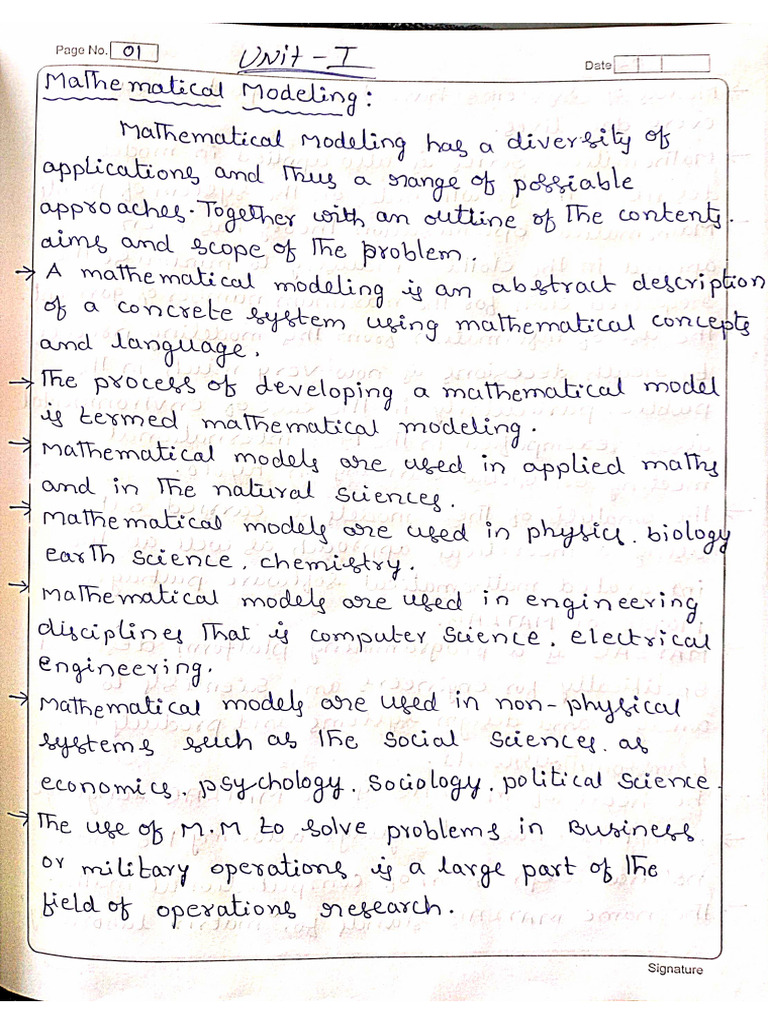 Page No. 01
Unit - I
Date
Mathematical Modeling :
Mathematical Modeling has a diversity of
applications and thus a range of possiable
approaches. Together with an outline of the contents.
aims and scope of the problem.
→ A mathematical modeling is an abstract description
of a concrete system using mathematical concepts
and language.
→ The process of developing a mathematical model
is termed mathematical modeling.
→ Mathematical models are used in applied maths
and in the natural sciences.
→ Mathematical models are used in physics, biology
earth science, chemistry.
→ Mathematical models are used in engineering
disciplines that is computer science, electrical
engineering.
→ Mathematical models are used in non-physical
systems such as the social sciences, as
economics, psychology, sociology, political science.
→ The use of M.M to solve problems in Business
or military operations is a large part of the
field of operations research.
Signature